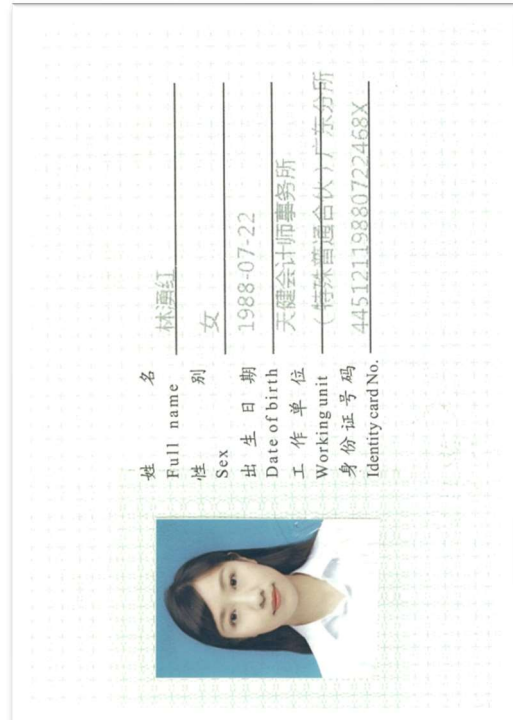 姓名 林湧红
Full name
性别 女
Sex
出生日期 1988-07-22
Date of birth
工作单位 天健会计师事务所
Working unit (特殊普通合伙)广东分所
身份证号码 44512119880722468X
Identity card No.